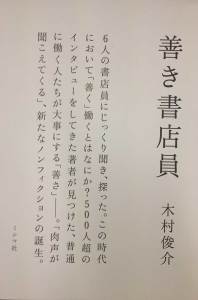 善き書店員
木村俊介
6人の書店員にじっくり聞き、探った。この時代
において「善く」働くとはなにか？500人超の
インタビューをしてきた著者が見つけた、普通
に働く人たちが大事にする「善さ」――。「肉声が
聞こえてくる」、新たなノンフィクションの誕生。
ミシマ社